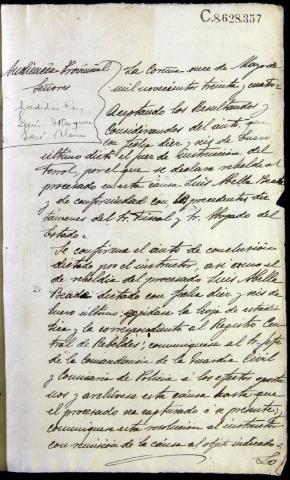 C.8.628.357
Audiencia Provincial
Señores
La Coruña once de Mayo de
mil novecientos treinta y cuatro.
Aceptando los Resultandos y
Considerandos del auto que
con fecha diez y seis de Enero
último dictó el juez de instrucción del
Ferrol, por el que se declara rebelde al
procesado en esta causa Luis Abella Beada
y de conformidad con los precedentes dic-
támenes del Sr. Fiscal y Sr. Abogado del
Estado.
Se confirma el auto de conclusión
dictado por el instructor, así como el
de rebeldía del procesado Luis Abella
Beada dictado con fecha diez y seis de
Enero último; expídase la hoja de estadís-
tica y la correspondiente al Registro Cen-
tral de Rebeldes; comuníquese al Sr. Jefe
de la Comandancia de la Guardia Civil
y Comisaría de Policía a los efectos oportu-
nos y archívese esta causa hasta que
el procesado sea capturado o se presente;
comuníquese esta resolución al instructor
con remisión de la causa al objeto indicado.
Lo